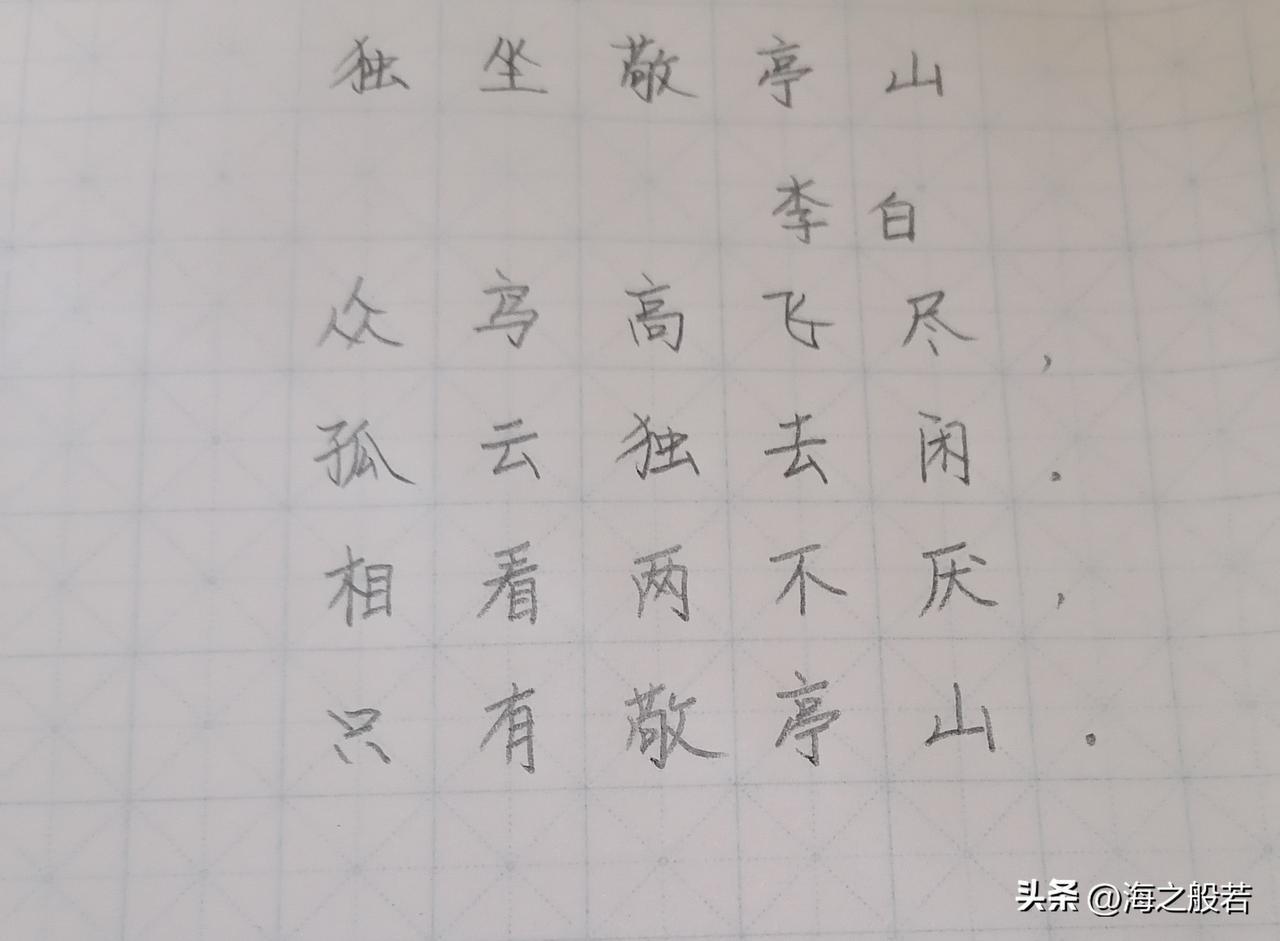 独坐敬亭山
李白
众鸟高飞尽,
孤云独去闲.
相看两不厌,
只有敬亭山.
头条 @海之般若